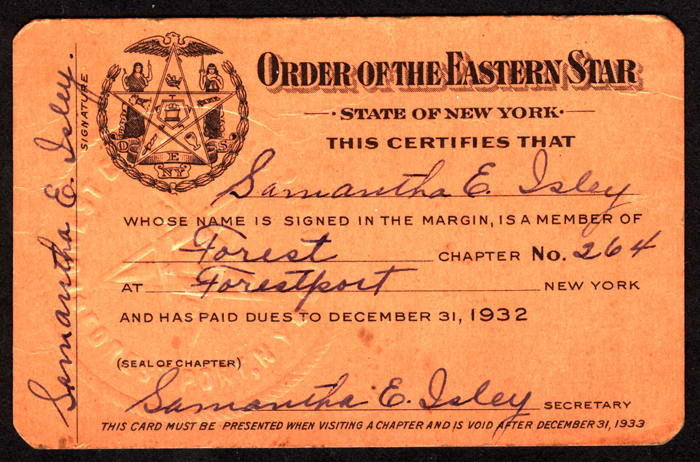 ORDER OF THE EASTERN STAR
STATE OF NEW YORK
THIS CERTIFIES THAT
Samantha E. Isley
WHOSE NAME IS SIGNED IN THE MARGIN, IS A MEMBER OF
Forest CHAPTER No. 264
AT Forestport NEW YORK
AND HAS PAID DUES TO DECEMBER 31, 1932
(SEAL OF CHAPTER)
Samantha E. Isley SECRETARY
THIS CARD MUST BE PRESENTED WHEN VISITING A CHAPTER AND IS VOID AFTER DECEMBER 31, 1933
Samantha E. Isley.
SIGNATURE
O E S
NY